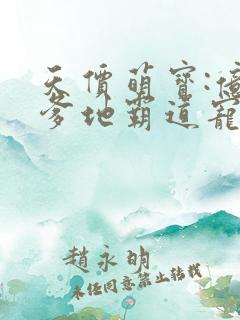 天價萌寶:億
爹地霸道寵
趙永明
未經同意禁止轉載